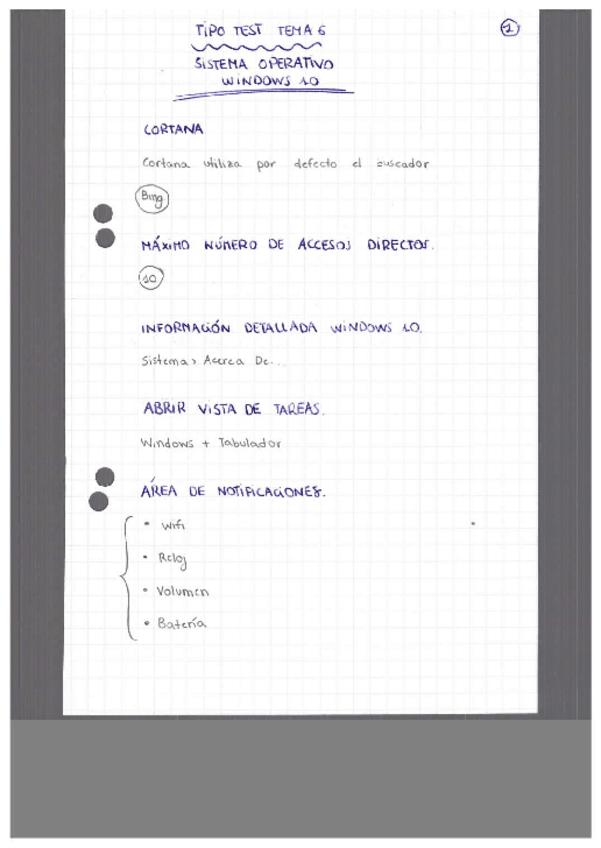 TIPO TEST TEMA 6
1
SISTEMA OPERATIVO
WINDOWS 10
CORTANA
Cortana utiliza por defecto el buscador
Bing
MÁXIMO NÚMERO DE ACCESOS DIRECTOS.
10
INFORMACIÓN DETALLADA WINDOWS 10.
Sistema > Acerca De...
ABRIR VISTA DE TAREAS.
Windows + Tabulador
ÁREA DE NOTIFICACIONES.
• Wifi
• Reloj
• Volumen
• Batería